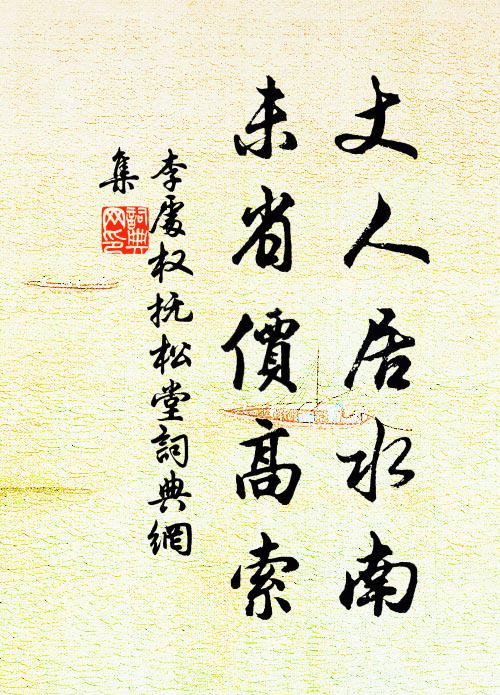 丈人居水南
未省價高索
李處权抚松堂詞典網
集
詞典
网印